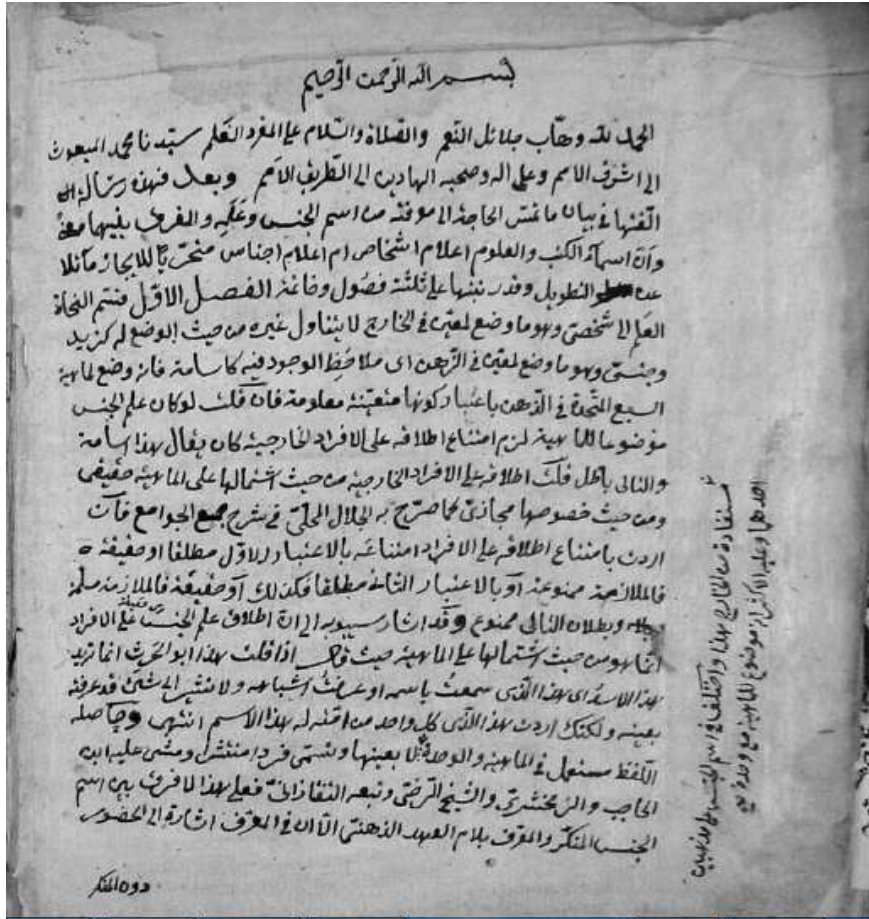 بسم الله الرحمن الرحيم
الحمد لله وهاب جلائل النعم والصلاة والسلام على المفرد العلم سيدنا محمد المبعوث
الى اشرف الامم وعلى اله وصحبه الهادين الى الطريق الامم وبعد فهذه رسالة
الفتها في بيان ما تمس الحاجة الى موفته من اسم الجنس وعلمه والفرق بينهما
وان اسماء الكتب والعلوم اعلام اشخاص ام اعلام اجناس متحريا للايجاز مائلا
عن التطويل وقد رتبتها على ثلثة فصول وخاتمة الفصل الاول قسم النحاة
العلم الى شخصي وهو ما وضع لمعين في الخارج لا يتناول غيره من حيث الوضع له كزيد
وجنسي وهو ما وضع لمعين في الذهن اى ملاحظ الوجود فيه كاسامة فانه وضع لماهية
السبع المتحدة في الذهن باعتبار كونها متعينة معلومة فان قلت لو كان علم الجنس
موضوعا للماهية لزم امتناع اطلاقه على الافراد الخارجية كان يقال هذا اسامة
والتالى باطل قلت اطلاقه على الافراد الخارجية من حيث اشتمالها على الماهية حقيقي
ومن حيث خصوصها مجازى كما صرح به الجلال المحلى في شرح جمع الجوامع فان
اردت بامتناع اطلاقه على الافراد امتناعه بالاعتبار الاول مطلقا او حقيقة
فالملازمة ممنوعة او بالاعتبار الثانى مطلقا فكذلك او حقيقة فالملازمة مسلمة
وبطلان التالى ممنوع وقد اشار سيبويه الى ان اطلاق علم الجنس على الافراد
انما هو من حيث اشتمالها على الماهية حيث قال اذا قلت هذا ابو الحرث انما تريد
هذا الاسد اى هذا الذى سمعت باسمه او عرفت اشباهه ولا تشير الى شئ قد عرفته
بعينه ولكنك اردت هذا الذى كل واحد من امته له هذا الاسم انتهى وحاصله
اللفظ مستعمل في الماهية والوحدة لا بعينها ويسمى فردا منتشرا ومشى عليه ابن
الحاجب والزمخشرى والشيخ الرضى وتبعه التفتازانى فعلى هذا لا فرق بين اسم
الجنس المنكر والمعرف بلام العهد الذهنى الا ان في المعرف اشارة الى الحضور
دون المنكر
مستفادة من الخارج هذا واختلف في اسم الجنس على مذهبين
احدهما وعليه الاكثر انه موضوع للماهية مع وحدة